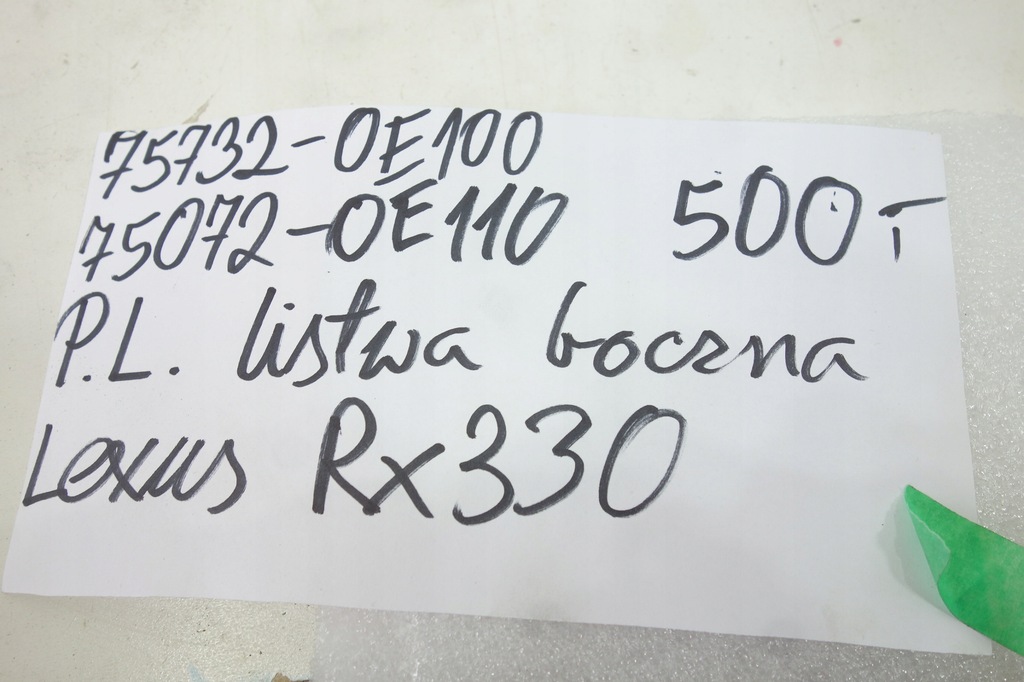 75732-0E100
75072-0E110 500,-
P.L. listwa boczna
Lexus Rx330